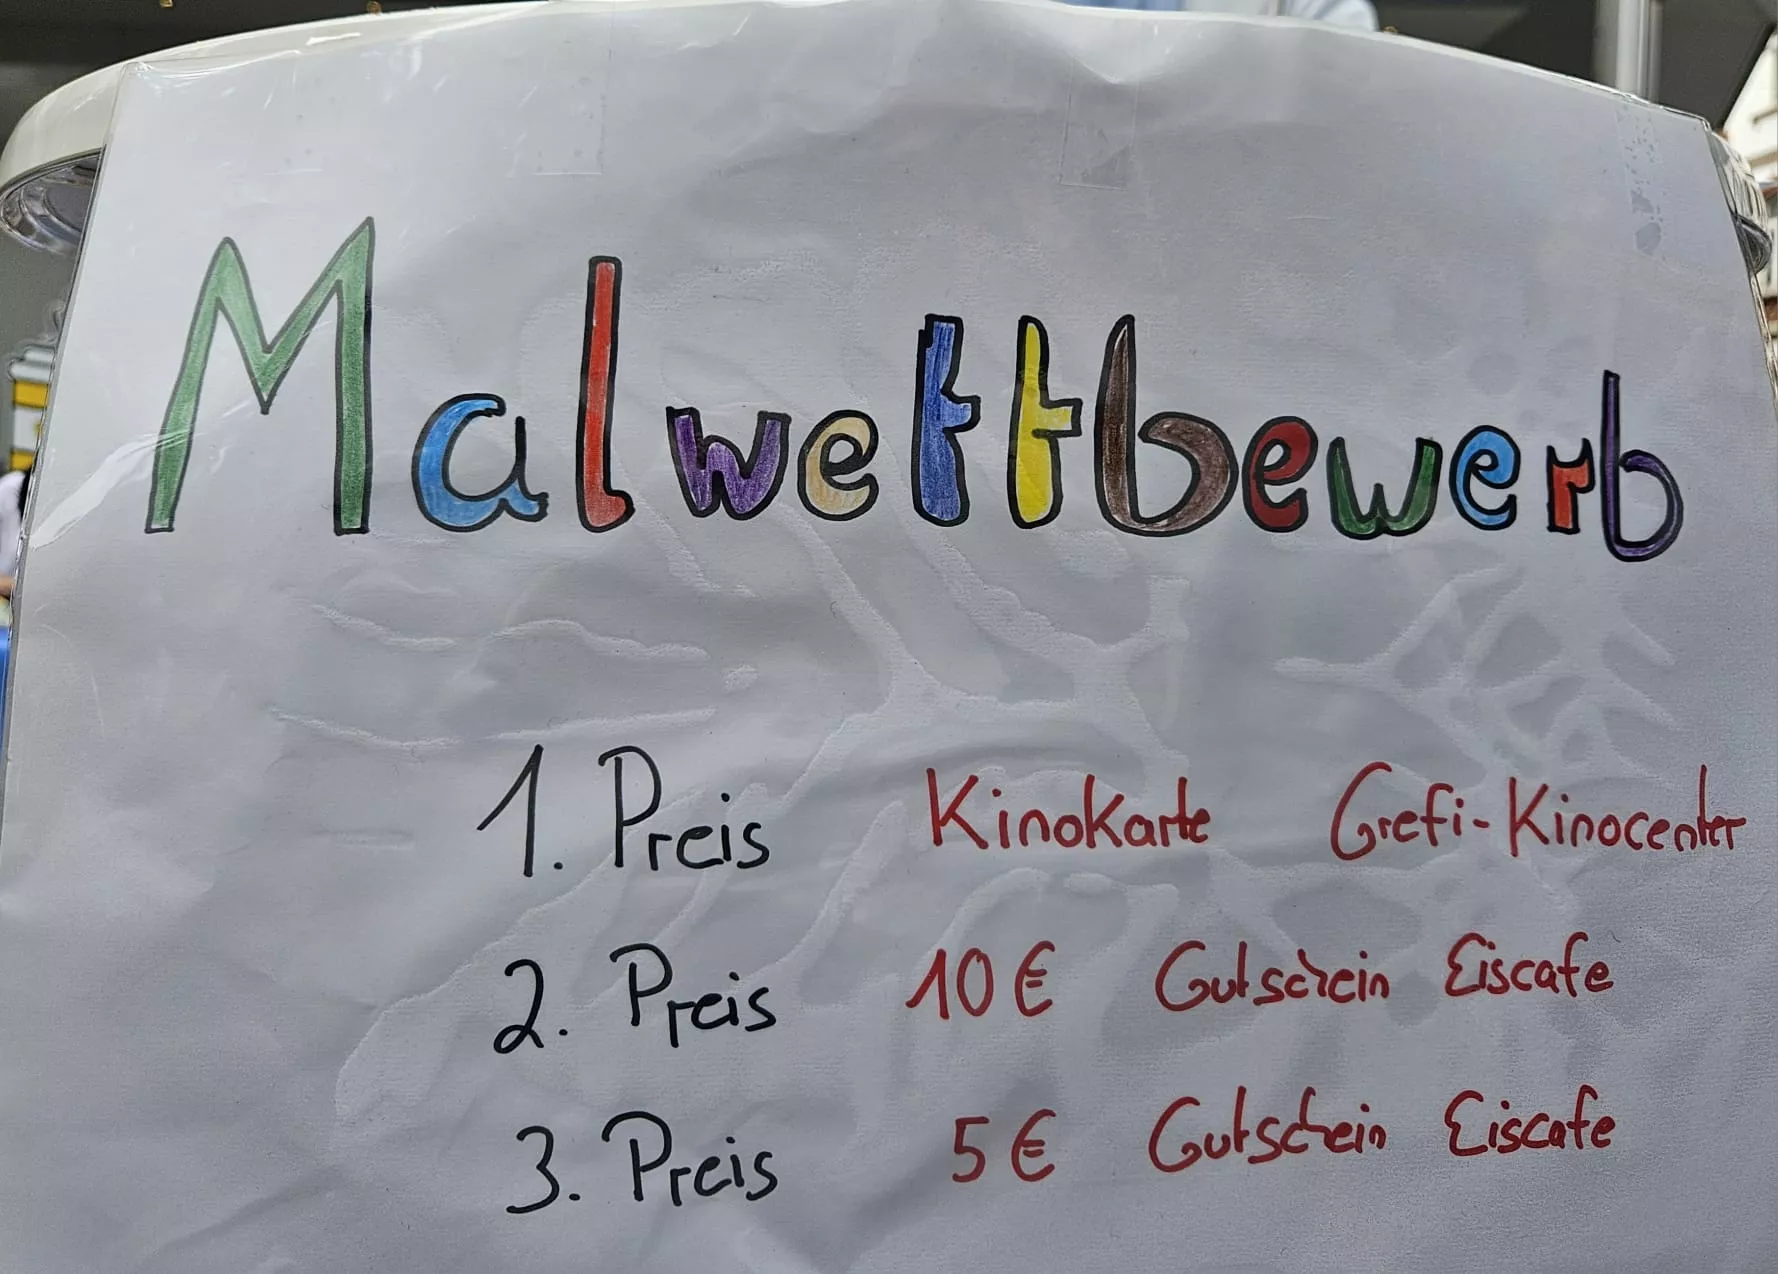 Malwettbewerb
1. Preis Kinokarte Grefi-Kinocenter
2. Preis 10 € Gutschein Eiscafe
3. Preis 5 € Gutschein Eiscafe